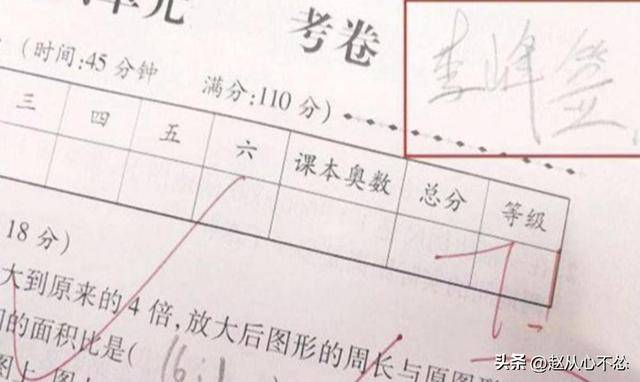 单元 考卷
李峰签
(时间:45分钟 满分:110分)
三 四 五 六 课本奥数 总分 等级
18分)
大到原来的4倍,放大后图形的周长与原图形
的面积比是( 16:1
头条 @赵从心不怂